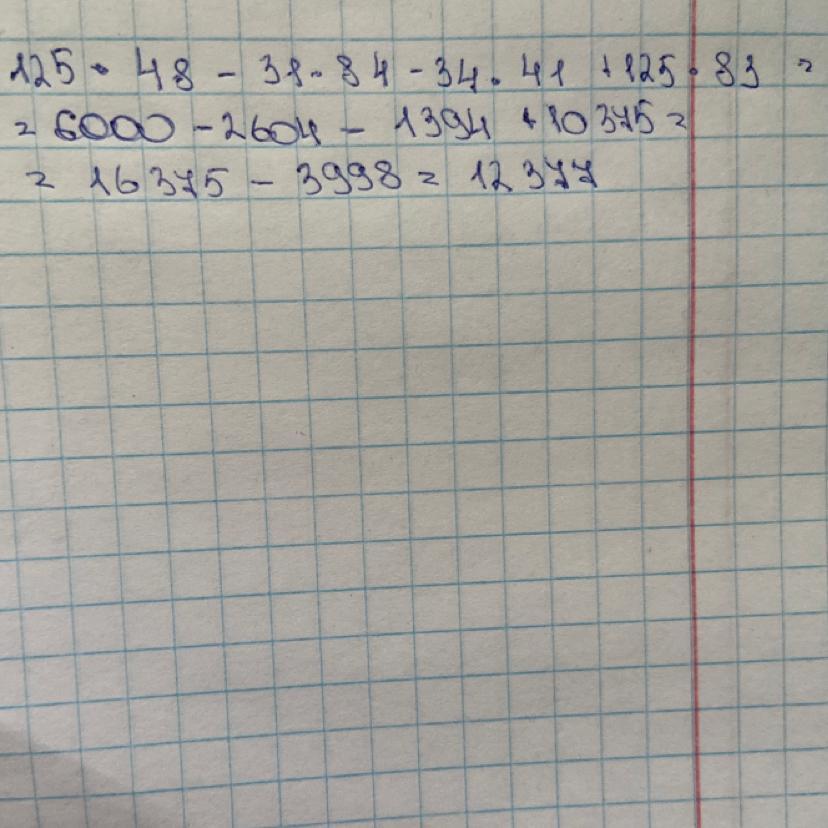 125 · 48 - 31 · 84 - 34 · 41 + 125 · 83 =
= 6000 - 2604 - 1394 + 10375 =
= 16375 - 3998 = 12377